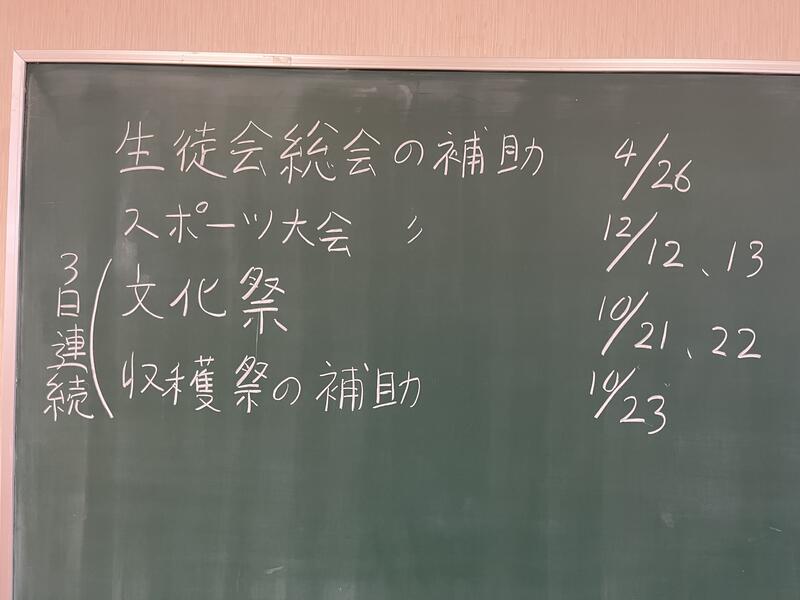 生徒会総会の補助 4/26
スポーツ大会 〃 12/12、13
3日連続
文化祭 10/21、22
収穫祭の補助 10/23